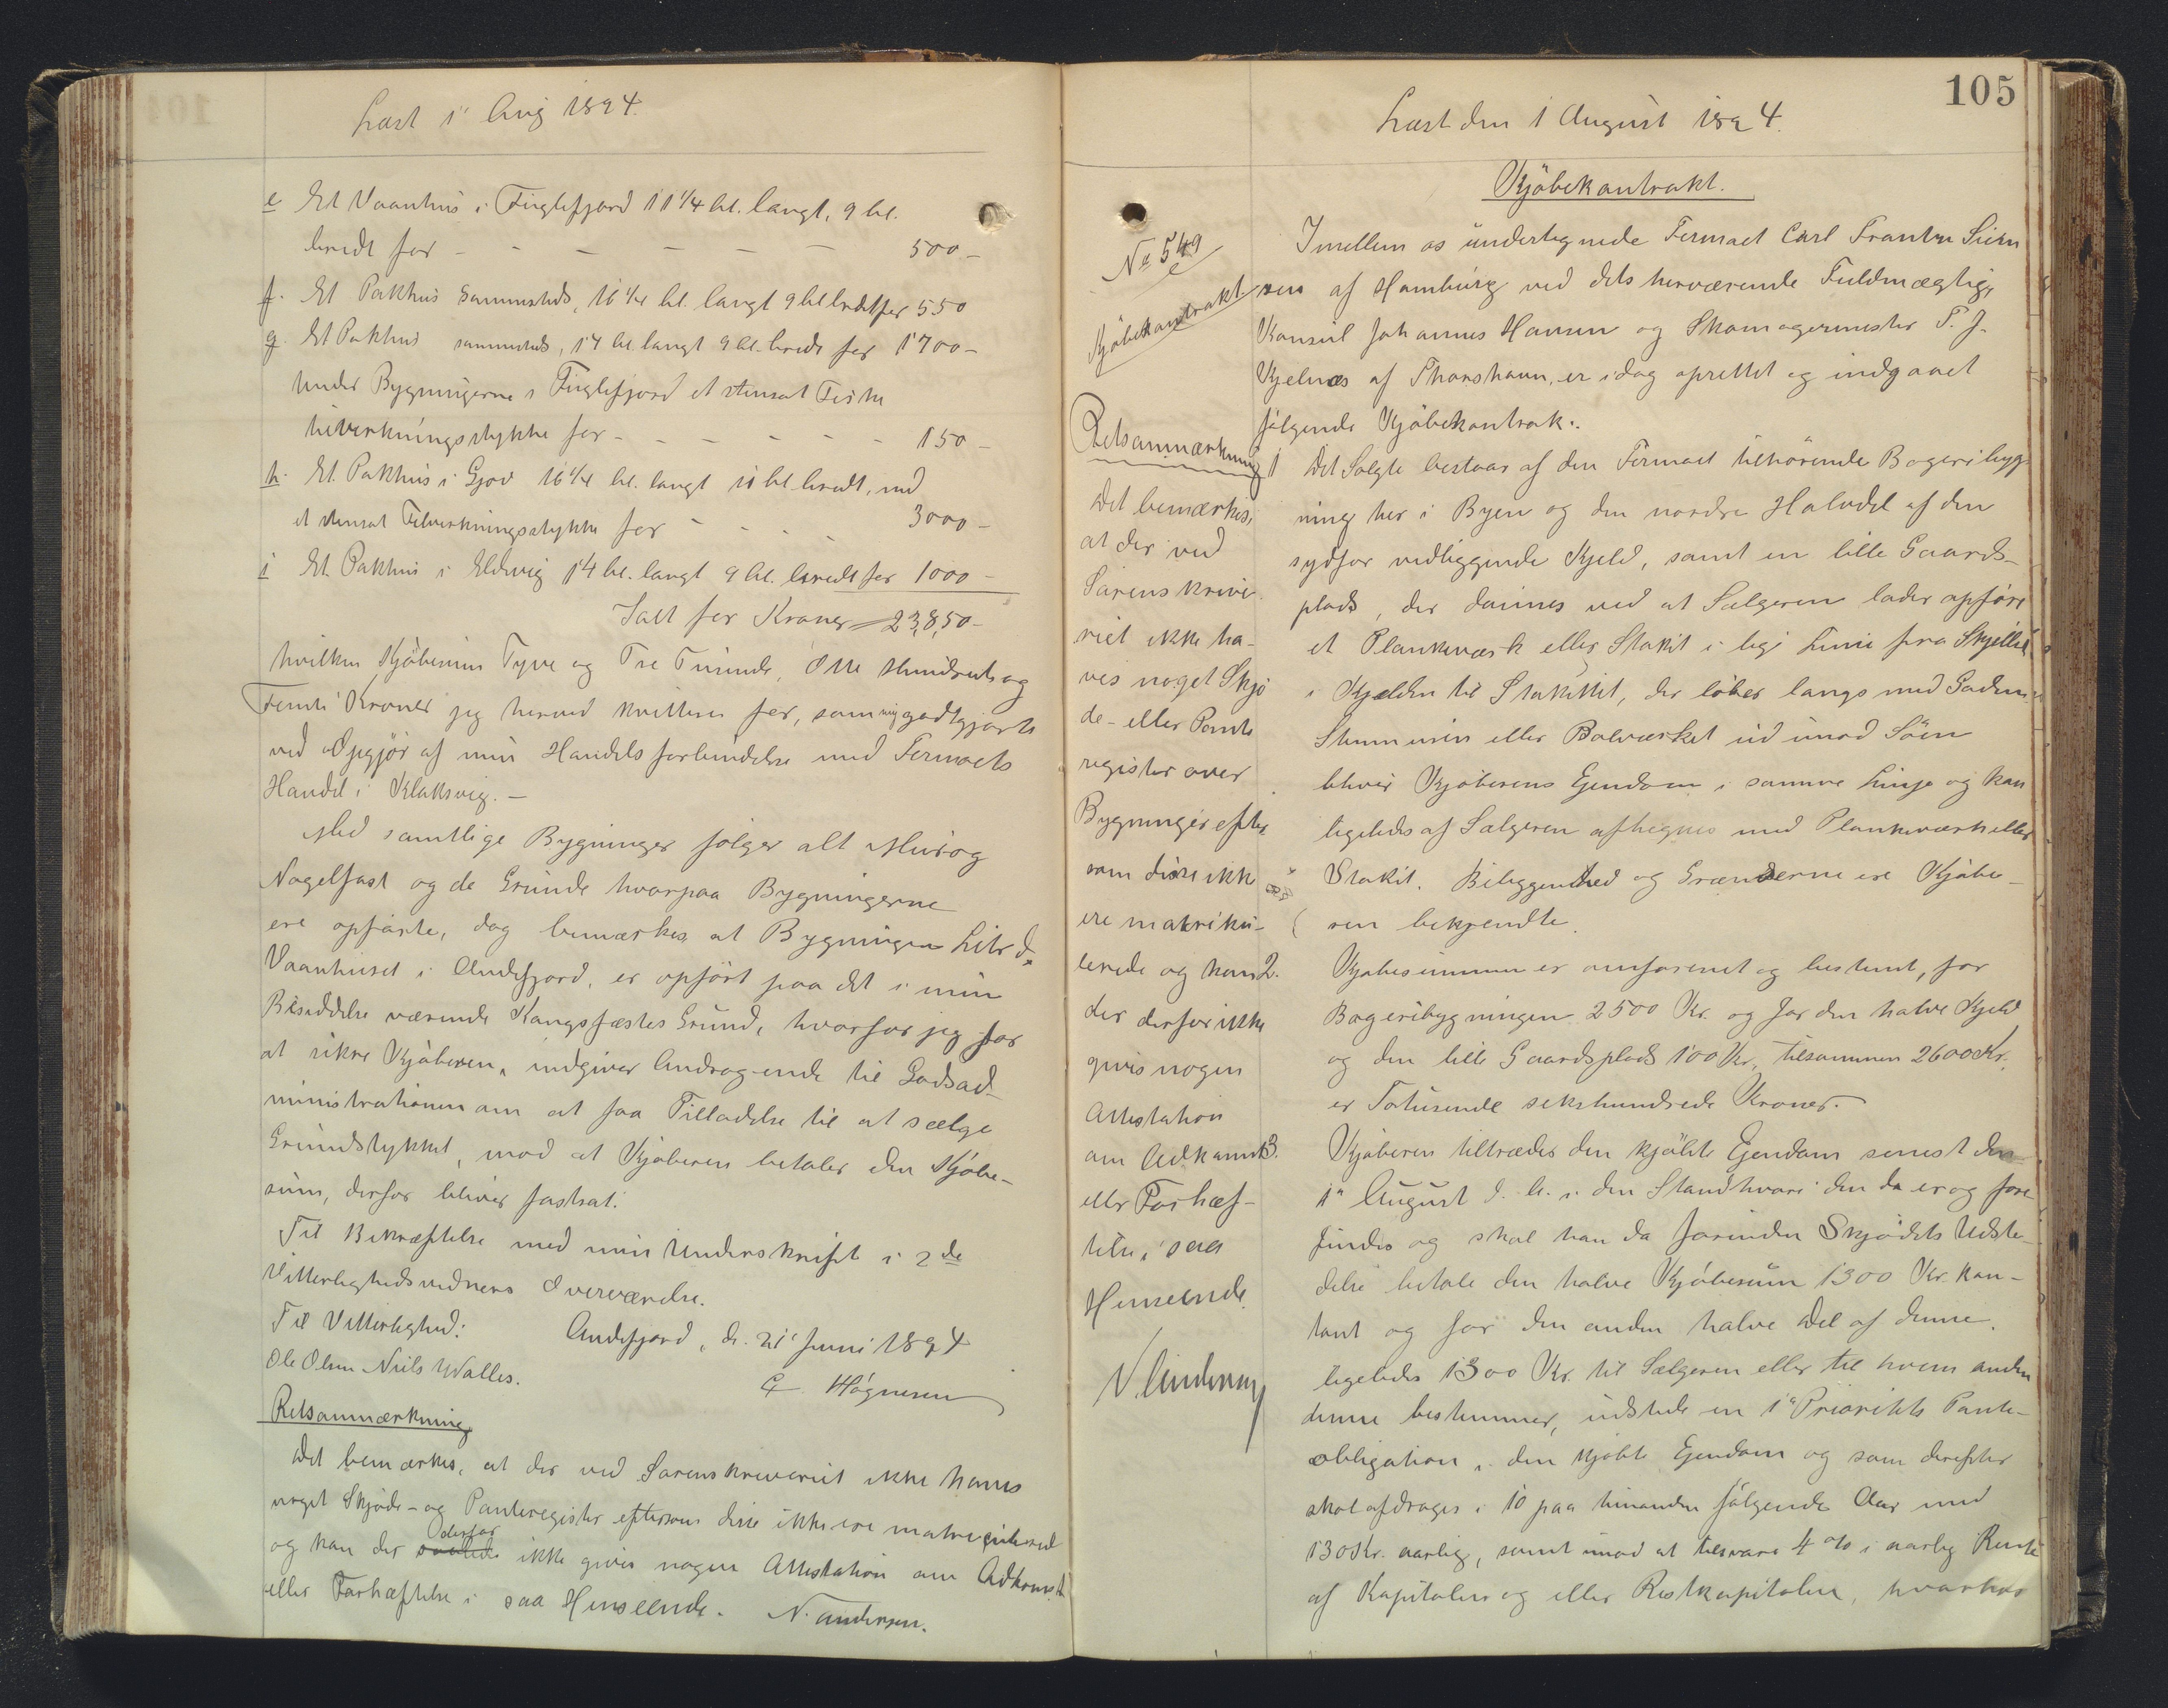 Læst 1" Aug 1894.
e Et Vaanhus i Fuglefjord 11 1/4 Al. langt, 9 Al.
bredt for - - - - - 500 -
f. Et Pakhus sammesteds, 16 1/4 Al. langt 9 Al bredt for 550
g. Et Pakhus sammesteds, 14 Al. langt 9 Al. bredt for 1700 -
under Bygningerne i Fuglefjord et stensat Fiske
tilvirkningsstykke for - - - - - - 150 -
h. Et Pakhus i Gjov 16 1/4 Al. langt 11 Al. bredt, med
et stensat Tilvirkningsstykke for - - - 3000 -
i Et Pakhus i Eldevig 14 Al. langt 9 Al. bredt for 1000 -
Ialt for Kroner 23,850 -
hvilken Kjøbesum Tyve og Tre Tusinde, Otte Hundrede og
Femti Kroner jeg herved kvitterer for, som mig godtgjørt
ved Opgjør af min Handelsforbindelse med Firmaets
Handel i Klaksvig. -
Med samtlige Bygninger følger alt Mur og
Nagelfast og de Grunde hvorpaa Bygningerne
ere opførte, dog bemærkes, at Bygningen Litr d.
Vaanhuset i Andefjord, er opført paa det i min
Besiddelse værende Kongsfæstes Grund, hvorfor jeg for
at sikre Kjøberen, indgiver Andragende til Godsad-
ministrationen om at faa Tilladelse til at sælge
Grundstykket, mod at Kjøberen betaler den Kjøbe-
sum, derfor bliver fastsat.
Til Bekræftelse med min Underskrift i 2de
Vitterlighedsvidners Overværelse.
Til Vitterlighed: Andefjord, d. 21' Juni 1894
Ole Olsen Niels Walles. G Høgnesen
Retsanmærkning
Det bemærkes, at der ved Sorenskriveriet ikke haves
noget Skjøde- og Panteregister eftersom disse ikke ere matriculered
og kan der derfor ikke gives nogen Attestation om Adkomst
eller Forhæftelse i saa Henseende. N. Andersen.
105
Læst den 1 August 1894.
Kjøbekontrakt.
No 549
Kjøbekontrakt
Imellem os undertegnede Firmaet Carl Frantz Siem
sen af Hamburg ved dets herværende Fuldmægtig,
Konsul Johannes Hansen og Skomagermester P. J.
Kjelnæs af Thorshavn, er idag oprettet og indgaaet
følgende Kjøbekontrak..
1 Det Solgte bestaar af den Firmaet tilhørende Bageribyg
ning her i Byen og den nordre Halvdel af den
sydfor vedliggende Kjeld, samt en lille Gaards-
plads, der dannes ved at Sælgeren lader opføre
et Plankeværk eller Stakit i lige Linie fra Skjellet
i Kjelden til Stakittet, der løber langs med Gaden.
Stenmuren eller Bolværket ud imod Søen
bliver Kjøberens Ejendom i samme Linje og kan
ligeledes af Sælgeren afhegnes med Plankeværk eller
Stakit. Beliggenhed og Grændserne ere Kjøbe-
ren bekjendte.
2. Kjøbesummen er omforenet og bestemt, for
Bageribygningen 2500 Kr. og for den halve Kjeld
og den lille Gaardsplads 100 Kr., tilsammen 2600 Kr.
er Totusende sekshundrede Kroner.
3. Kjøberen tiltræder den kjøbte Ejendom senest den
1" August d. A. i den Stand hvori den da er og fore
findes og skal han da forinden Skjødets Udste-
delse betale den halve Kjøbesum 1300 Kr. kon-
tant og for den anden halve Del af denne,
ligeledes 1300 Kr. til Sælgeren eller til hvem anden
denne bestemmer, udstede en 1" Prioritets Pante-
obligation i den kjøbte Ejendom og som derefter
skal afdrages i 10 paa hinanden følgende Aar med
130 Kr. aarlig, samt imod at tilsvare 4 % i aarlig Rente
af Kapitalen og eller Restkapitalen, hvorhos
Retsanmærkning
Det bemærkes,
at der ved
Sorenskrive-
riet ikke ha-
ves noget Skjø
de- eller Pante
register over
Bygninger efter
som disse ikke
ere matriku-
lerede og kan
der derfor ikke
gives nogen
Attestation
om Adkomst
eller Forhæf-
telse i saa
Henseende.
N. Andersen